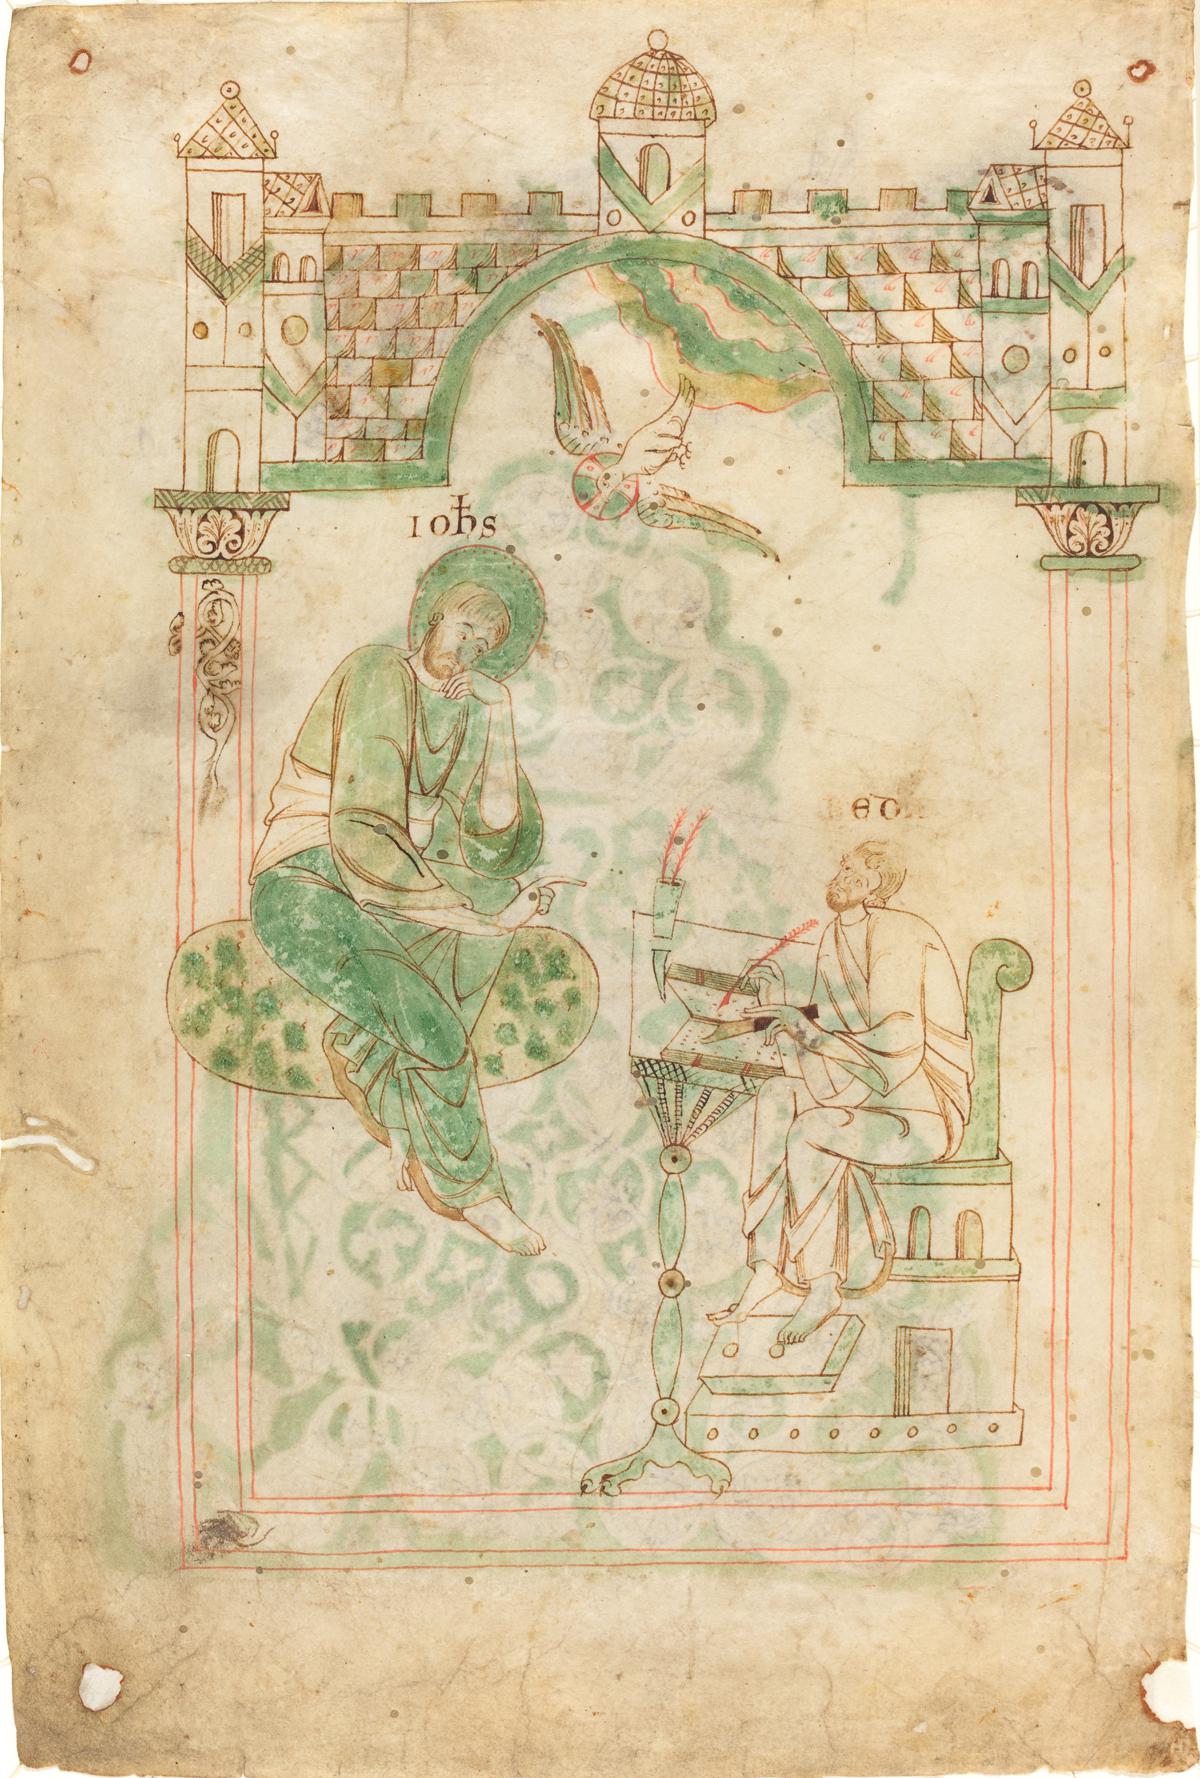 ioħs
beda